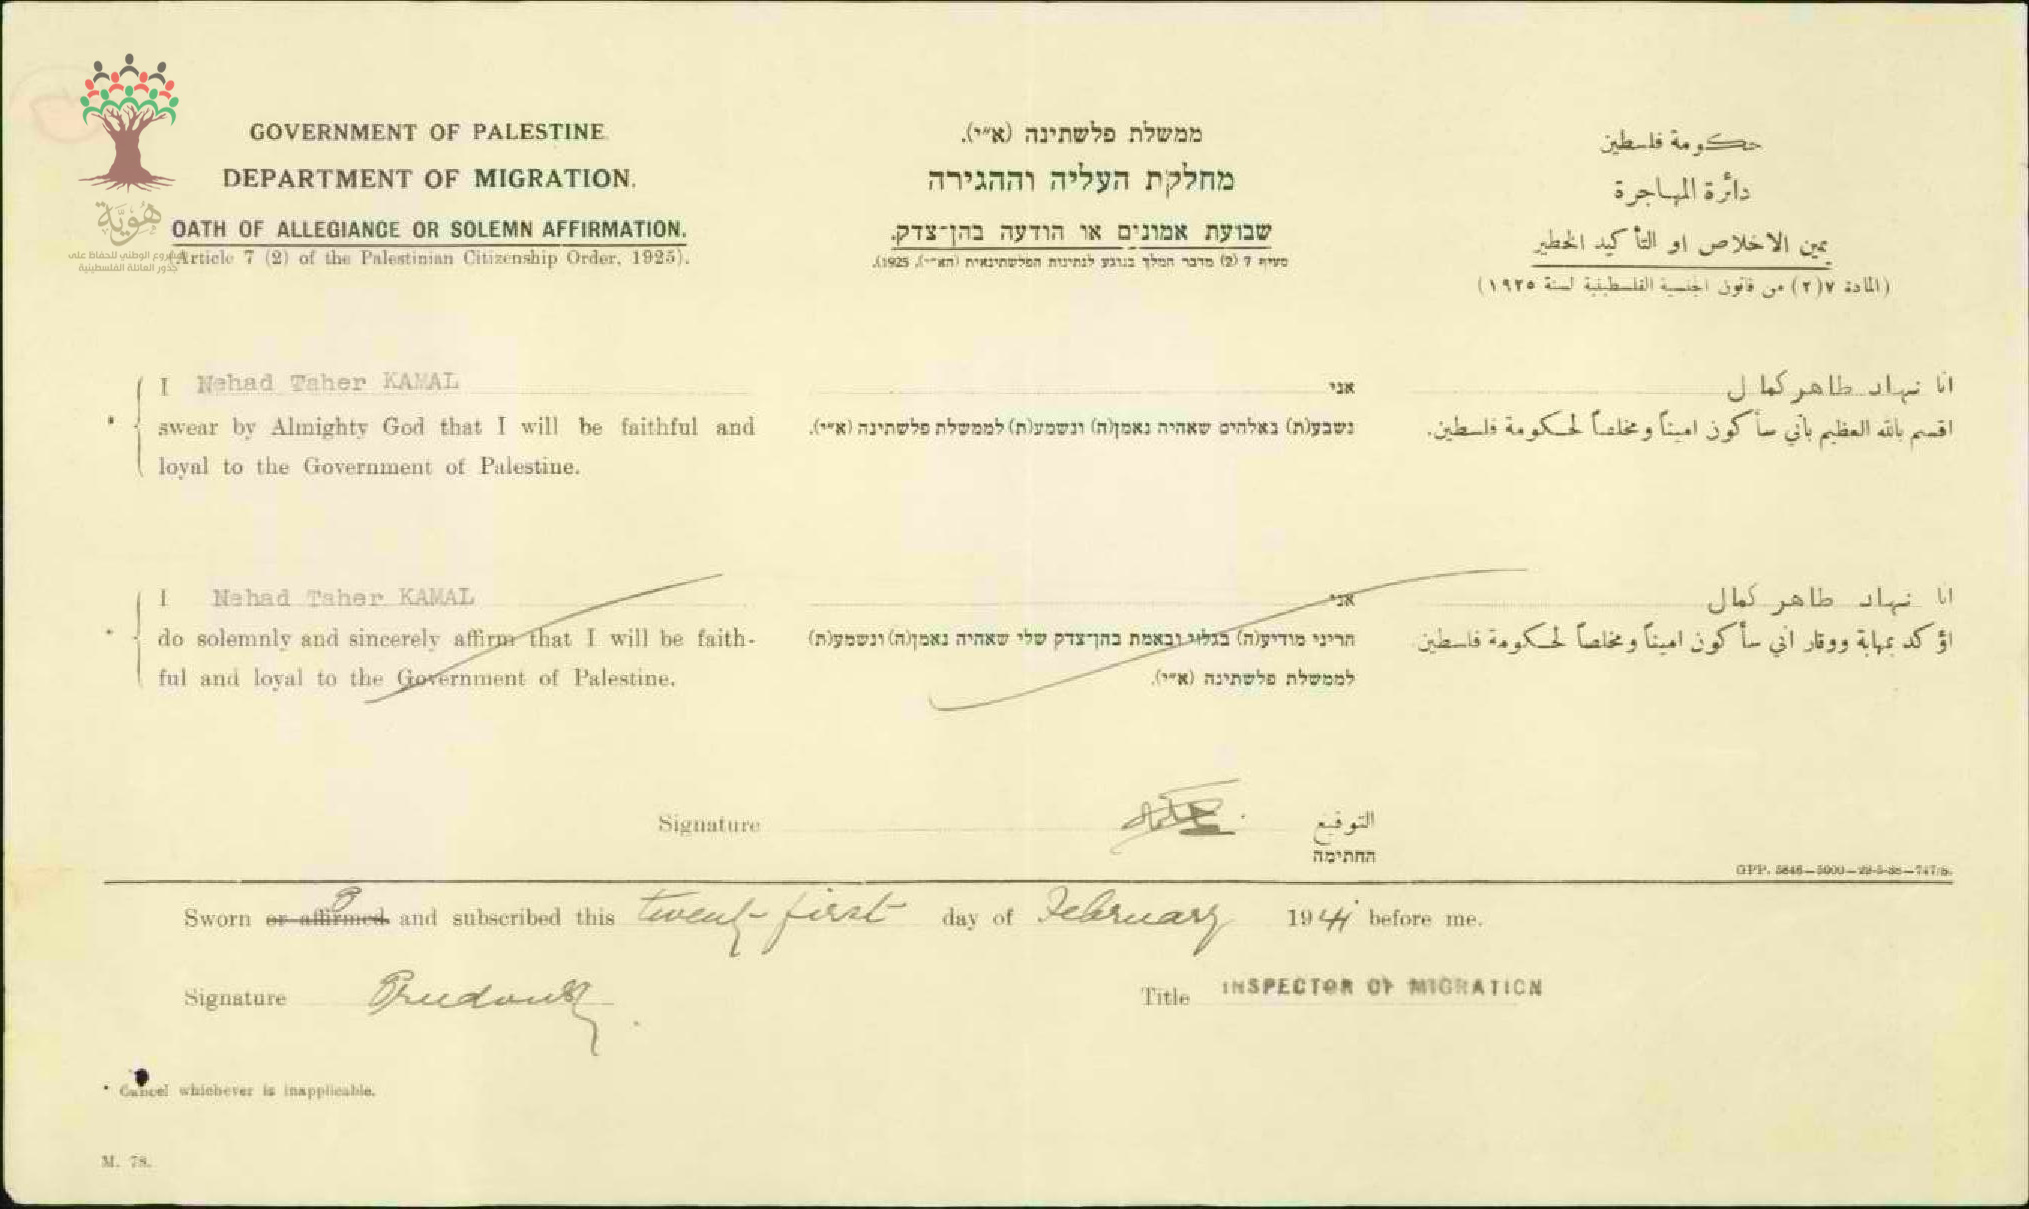 GOVERNMENT OF PALESTINE.
DEPARTMENT OF MIGRATION.
OATH OF ALLEGIANCE OR SOLEMN AFFIRMATION.
(Article 7 (2) of the Palestinian Citizenship Order, 1925).
ממשלת פלשתינה (א״י).
מחלקת העליה וההגירה
שבועת אמונים או הודעה בהן־צדק.
סעיף 7 (2) מדבר המלך בנוגע לנתינות הפלשתינאית (הא״י), 1925).
حكومة فلسطين
دائرة المهاجرة
يمين الاخلاص او التأكيد الخطير
(المادة ٧(٢) من قانون الجنسية الفلسطينية لسنة ١٩٢٥)
هُوِيَّة
المشروع الوطني للحفاظ على
جذور العائلة الفلسطينية
I Nehad Taher KAMAL
swear by Almighty God that I will be faithful and
loyal to the Government of Palestine.
אני
נשבע(ת) באלהים שאהיה נאמן(ה) ונשמע(ת) לממשלת פלשתינה (א״י).
انا نهاد طاهر كمال
اقسم بالله العظيم بأني سأكون اميناً ومخلصاً لحكومة فلسطين.
I Nehad Taher KAMAL
do solemnly and sincerely affirm that I will be faith-
ful and loyal to the Government of Palestine.
אני
הריני מודיע(ה) בגלוי ובאמת בהן־צדק שלי שאהיה נאמן(ה) ונשמע(ת)
לממשלת פלשתינה (א״י).
انا نهاد طاهر كمال
اؤكد بمهابة ووقار اني سأكون اميناً ومخلصاً لحكومة فلسطين.
Signature التوقيع
החתימה
GPP. 5846—5000—22-5-38—747/S.
Sworn or affirmed and subscribed this twenty-first day of February 1941 before me.
Signature Title INSPECTOR OF MIGRATION
* Cancel whichever is inapplicable.
M. 78.